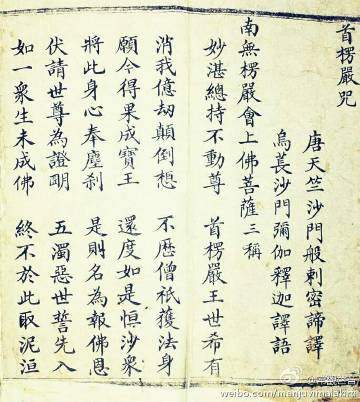 首楞嚴咒
唐天竺沙門般剌密諦譯
烏萇沙門彌伽釋迦譯語
南無楞嚴會上佛菩薩三稱
妙湛總持不動尊 首楞嚴王世希有
消我億劫顛倒想 不歷僧祇獲法身
願今得果成寶王 還度如是恒沙衆
將此身心奉塵剎 是則名為報佛恩
伏請世尊為證明 五濁惡世誓先入
如一衆生未成佛 終不於此取泥洹